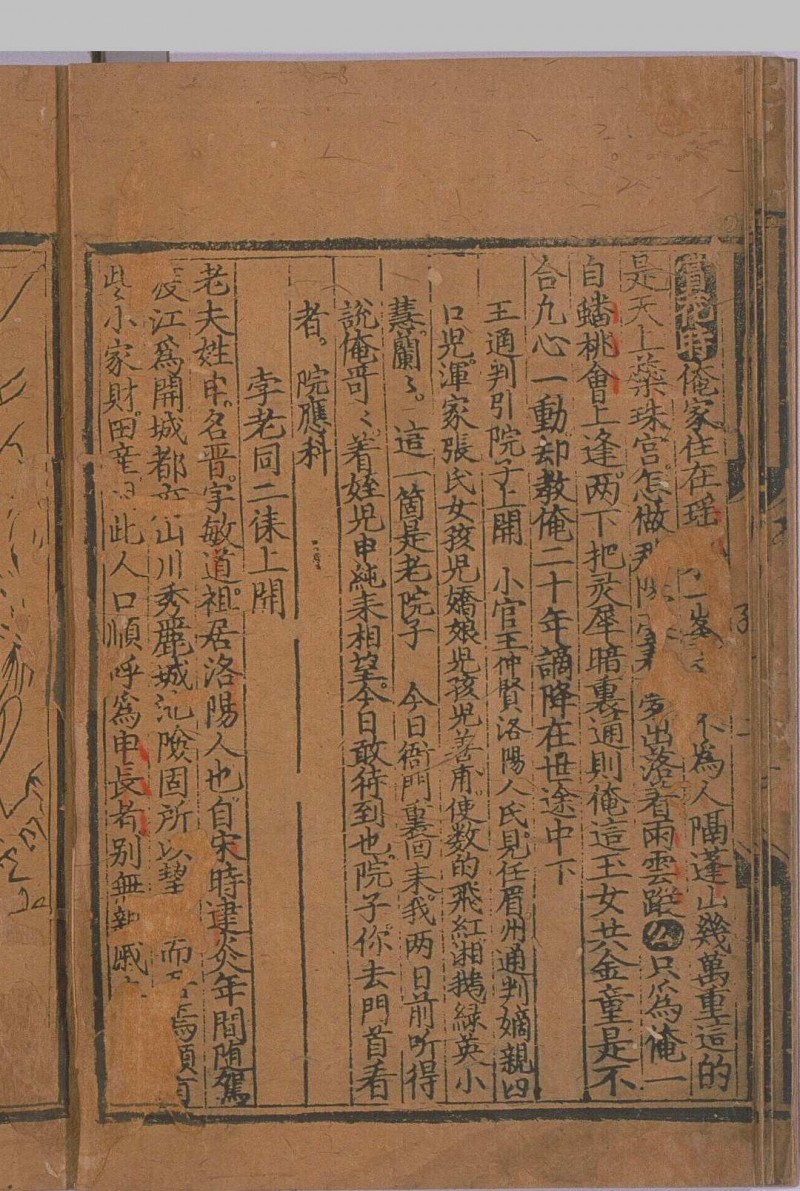 賞花時俺家住在瑶 不為人隔蓬山幾萬重這的
是天上蘂珠宮怎做 出落着雨雲蹤 只為俺一
自蟠桃會上逢两下把灵犀暗裏通則俺這玉女共金童是不
合九心一動却教俺二十年謫降在世途中下
王通判引院子上開 小官王仲賢洛陽人氏見任眉州通判嫡親四
口児渾家張氏女孩児嬌娘児孩児善甫使数的飛紅湘鵝緑英小
慧蘭〻這一箇是老院子 今日衙門裏回来我两日前听得
說俺哥〻着姪児申純来相望今日敢待到也院子你去門首看
者院應科
孛老同二徕上開
老夫姓申名晋字敏道祖居洛陽人也自宋時建炎年間随駕
渡江為開城都 山川秀麗城池險固所以 而 焉頗有
些小家財田産 此人口順呼為申長者别無親戚